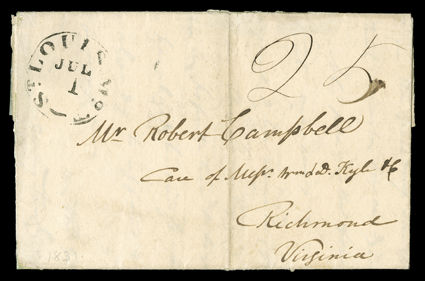 ST. LOUIS Mo.
JUL
1
25
Mr Robert Campbell
Care of Messrs. Wm & D. Kyle & Co
Richmond
Virginia